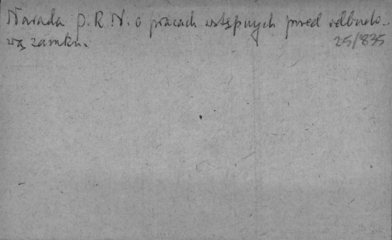 Narada p. R. N. o pracach wstępnych przed odbudo-
wą zamku.
25/835